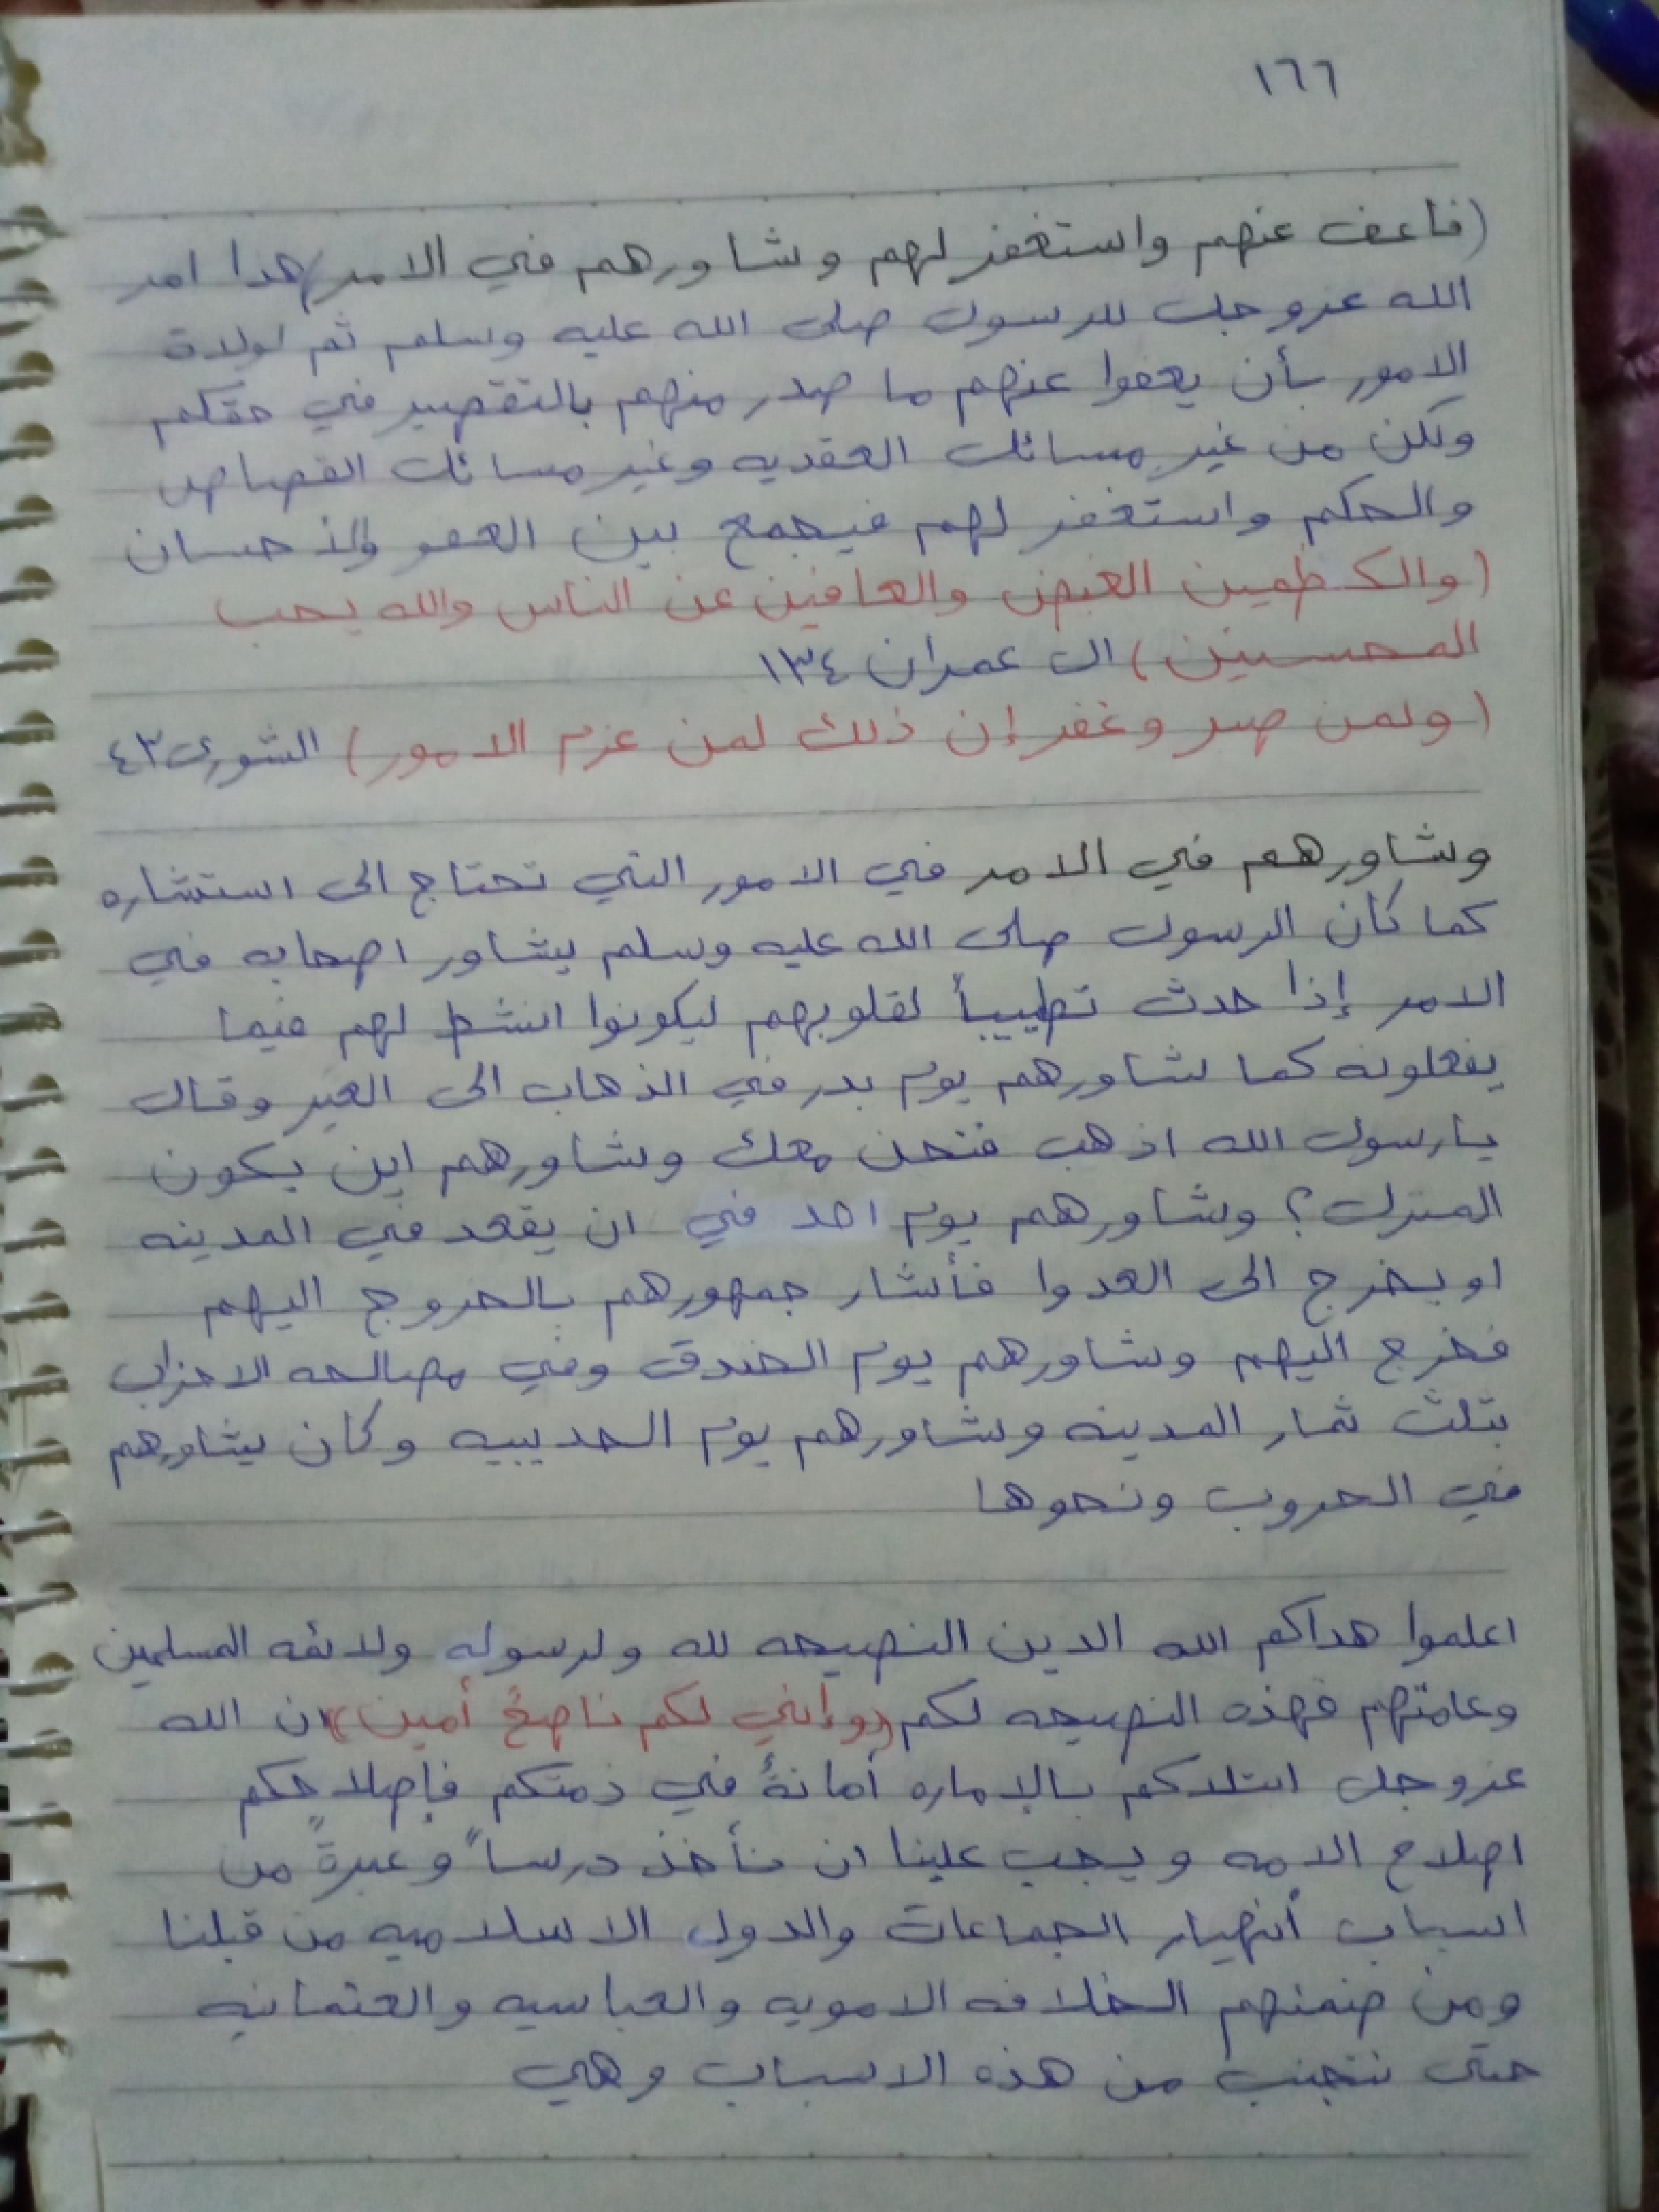 ١٦٦
(فاعف عنهم واستغفر لهم وشاورهم في الامر) هذا امر
الله عزوجل للرسول صلى الله عليه وسلم ثم لولاة
الامور بأن يعفوا عنهم ما صدر منهم بالتقصير في حقكم
ولكن من غير مسائل العقديه وغير مسائل القصاص
والحكم واستغفر لهم فيجمع بين العفو والاحسان
(والكظمين الغيض والعافين عن الناس والله يحب
المحسنين) ال عمران ١٣٤
(ولمن صبر وغفر إن ذلك لمن عزم الامور) الشورى ٤٣
وشاورهم في الامر في الامور التي تحتاج الى استشاره
كما كان الرسول صلى الله عليه وسلم يشاور اصحابه في
الامر إذا حدث تطييباً لقلوبهم ليكونوا انشط لهم فيما
يفعلونه كما شاورهم يوم بدر في الذهاب الى العير وقال
يارسول الله اذهب فنحن معك وشاورهم اين يكون
المنزل؟ وشاورهم يوم احد في ان يقعد في المدينه
او يخرج الى العدوا فأشار جمهورهم بالخروج اليهم
فخرج اليهم وشاورهم يوم الخندق وفي مصالحه الاحزاب
بثلث ثمار المدينه وشاورهم يوم الحديبيه وكان يشاورهم
في الحروب ونحوها
اعلموا هداكم الله الدين النصيحه لله ولرسوله ولائمه المسلمين
وعامتهم فهذه النصيحه لكم ((وإني لكم ناصحٌ أمين)) ان الله
عزوجل ابتلاكم بالإماره أمانةٌ في ذمتكم فإصلاحكم
اصلاح الامه ويجب علينا ان نأخذ درساً وعبرةً من
اسباب أنهيار الجماعات والدول الاسلاميه من قبلنا
ومن ضمنهم الخلافه الامويه والعباسيه والعثمانيه
حتى نتجنب من هذه الاسباب وهي